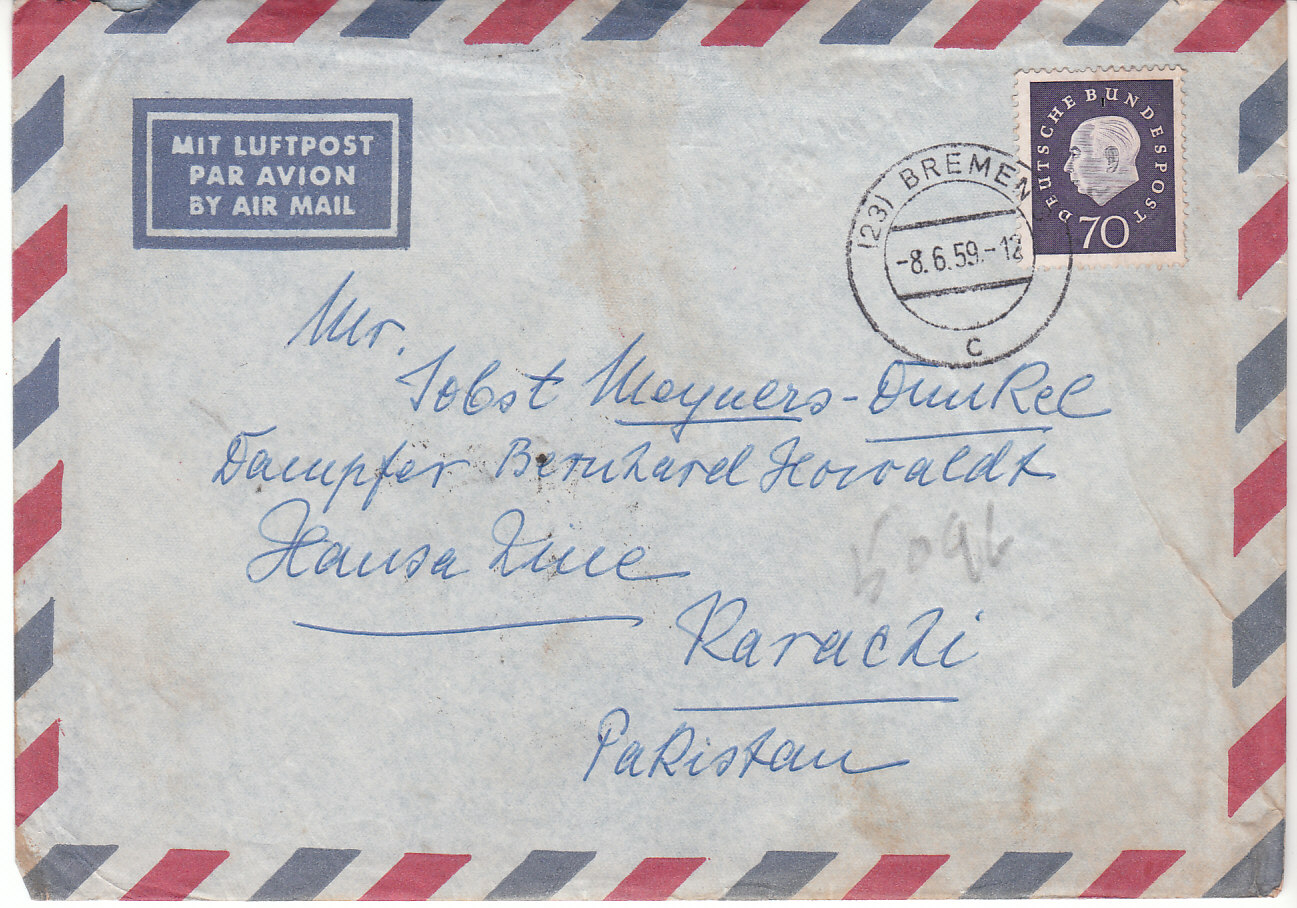 MIT LUFTPOST
PAR AVION
BY AIR MAIL
DEUTSCHE BUNDESPOST
70
(23) BREMEN
-8.6.59.-12
c
Mr.
Jobst Meyners-Dunkel
Dampfer Bernhard Howaldt
Hansa Line
Karachi
Pakistan